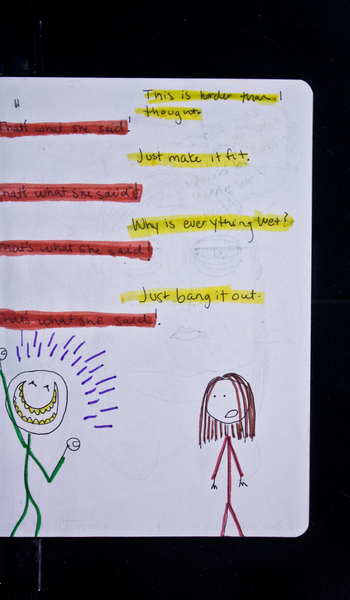 This is harder than I
thought.
That's what she said!
Just make it fit.
That's what she said!
Why is everything wet?
That's what she said!
Just bang it out.
That's what she said!